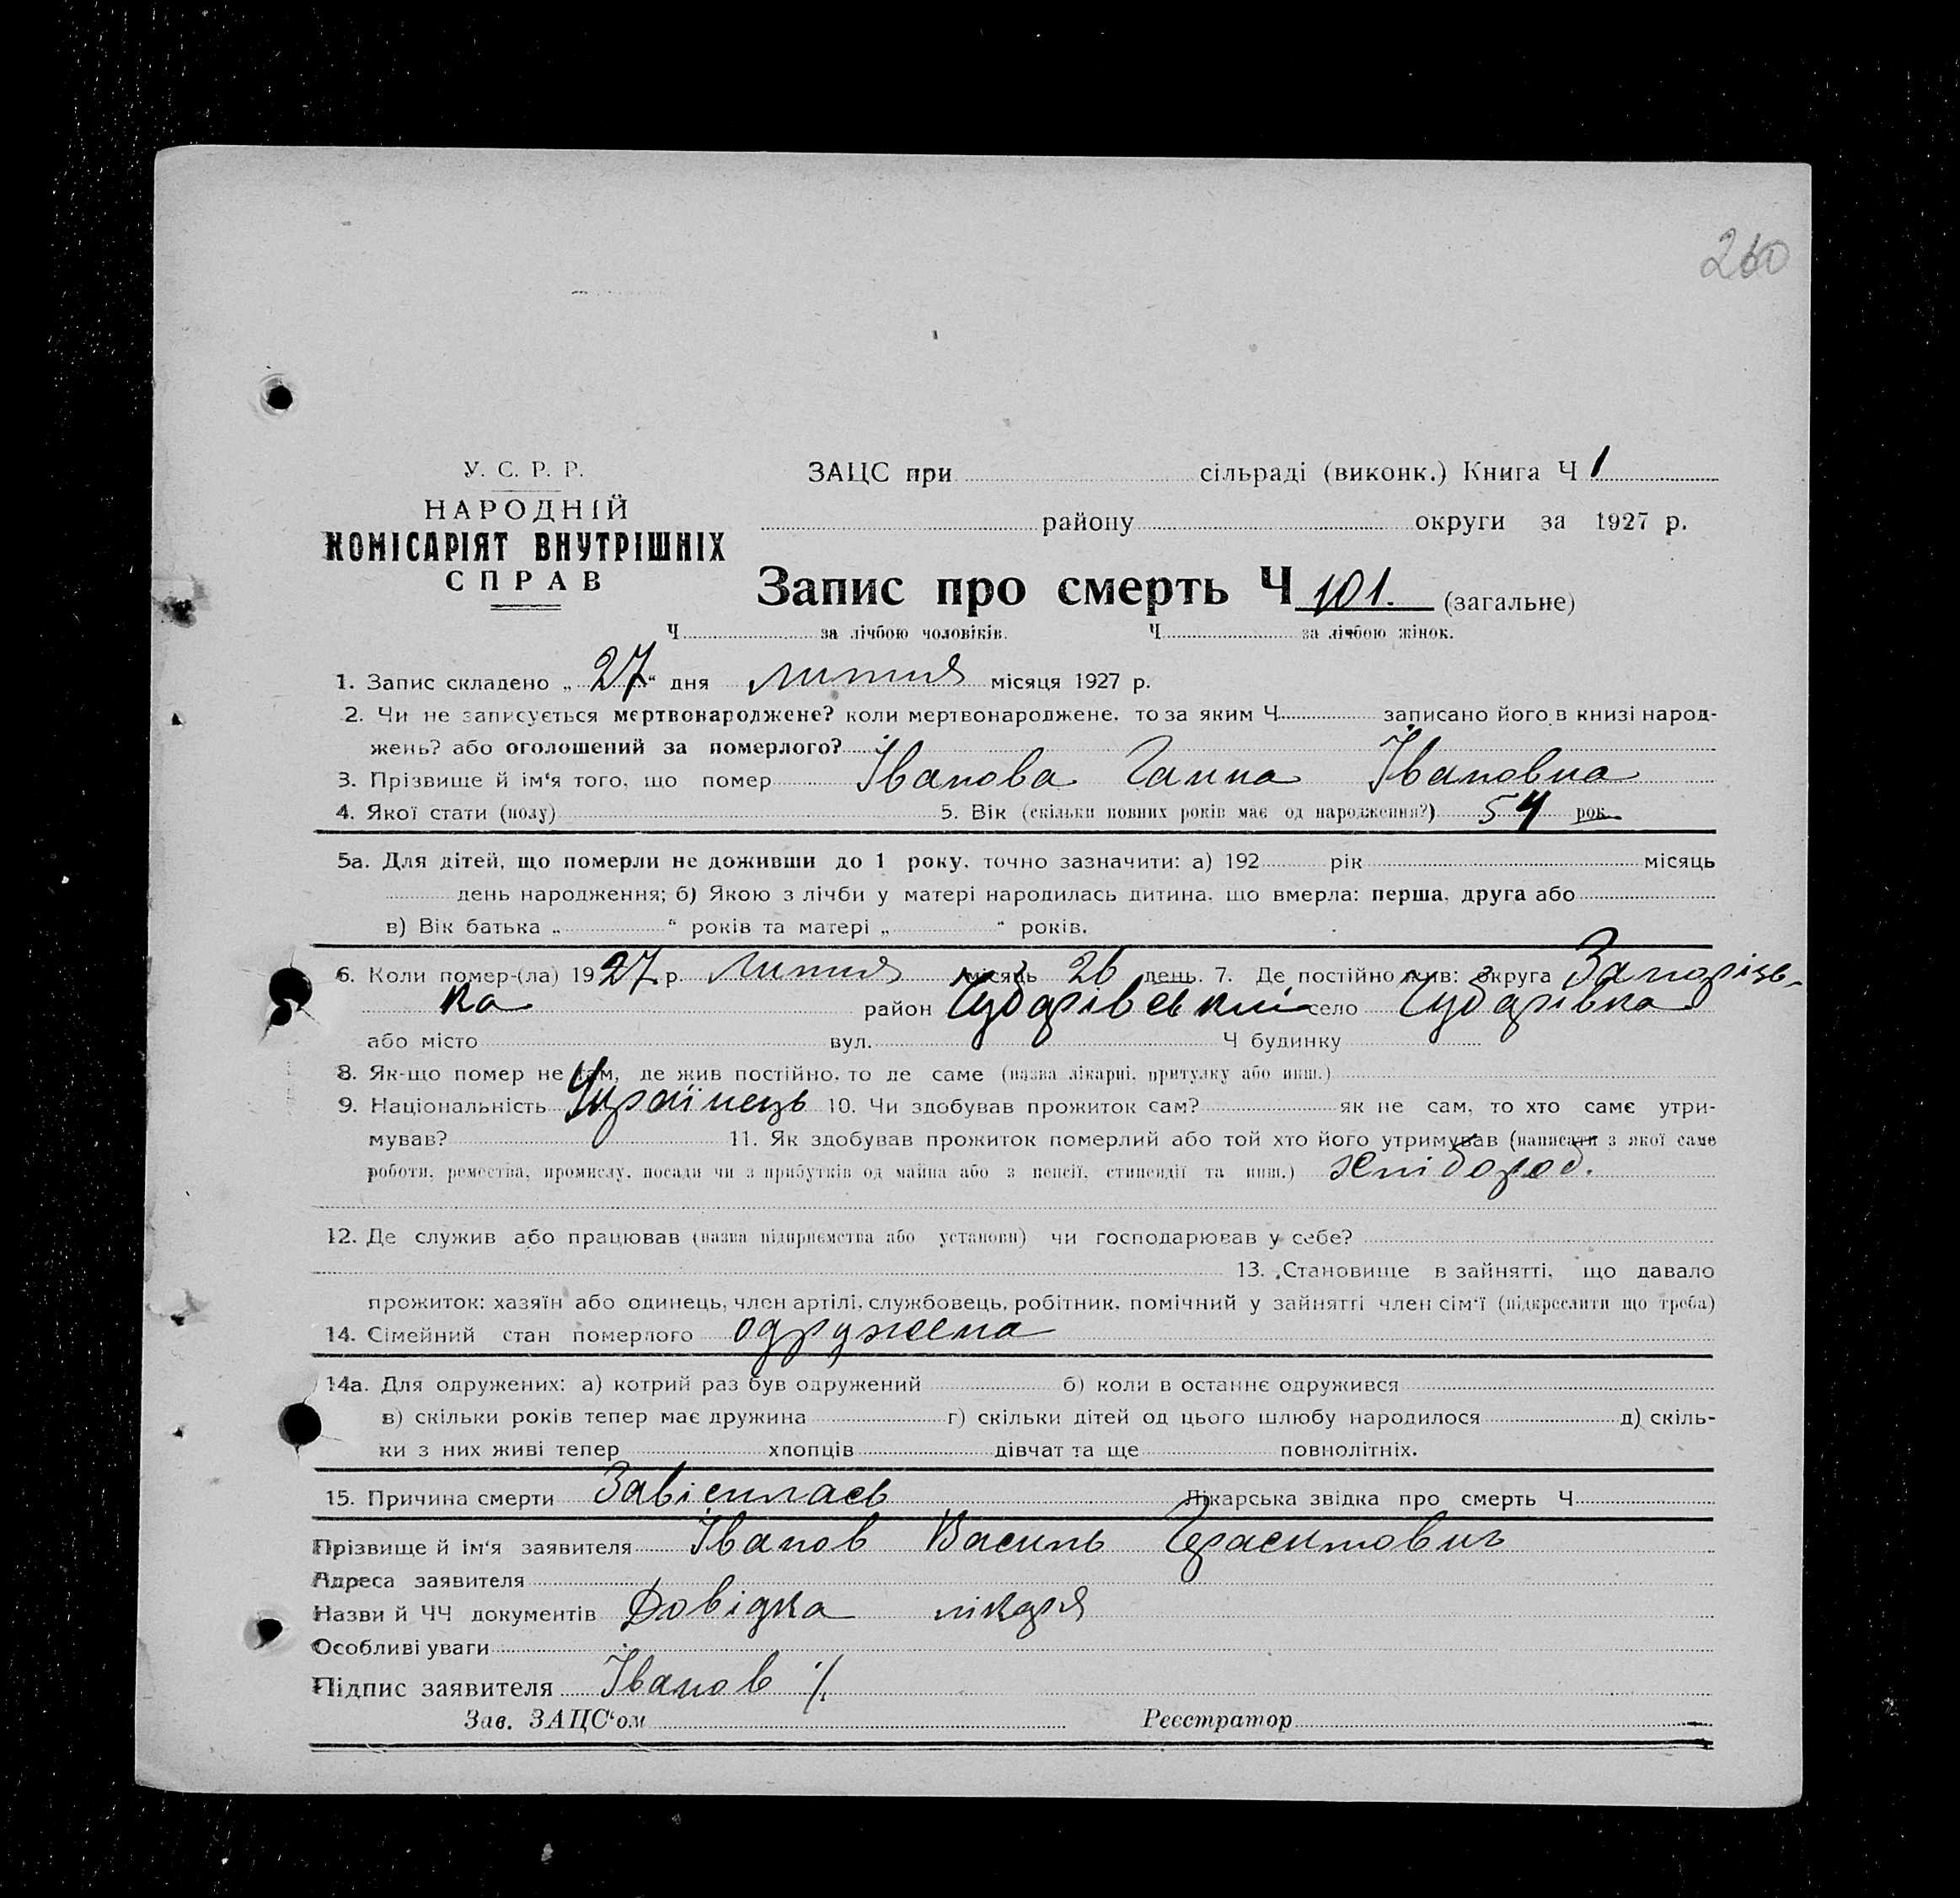 260
У. С. Р. Р.
НАРОДНІЙ
КОМІСАРІЯТ ВНУТРІШНІХ
СПРАВ
ЗАЦС при сільраді (виконк.) Книга Ч 1
району округи за 1927 р.
Запис про смерть Ч 101. (загальне)
Ч за лічбою чоловіків. Ч за лічбою жінок.
1. Запис складено „ 27 “ дня липня місяця 1927 р.
2. Чи не записується мертвонароджене? коли мертвонароджене, то за яким Ч записано його в книзі народ-
жень? або оголошений за померлого?
3. Прізвище й ім'я того, що помер Іванова Ганна Івановна
4. Якої стати (полу) 5. Вік (скільки повних років має од народження?) 54 рок.
5а. Для дітей, що померли не доживши до 1 року, точно зазначити: а) 192 рік місяць
день народження; б) Якою з лічби у матері народилась дитина, що вмерла: перша, друга або
в) Вік батька „ “ років та матері „ “ років.
6. Коли помер-(ла) 1927 р. липня місяць 26 день. 7. Де постійно жив: округа Запорізь-
ка район Чубарівський село Чубарівка
або місто вул. Ч будинку
8. Як-що помер не там, де жив постійно, то де саме (назва лікарні, притулку або инш.)
9. Національність Українець 10. Чи здобував прожиток сам? як не сам, то хто саме утри-
мував? 11. Як здобував прожиток померлий або той хто його утримував (написати з якої саме
роботи, ремества, промислу, посади чи з прибутків од майна або з пенсії, стипендії та инш.) хлібороб.
12. Де служив або працював (назва підприємства або установи) чи господарював у себе?
13. Становище в зайнятті, що давало
прожиток: хазяїн або одинець, член артілі, службовець, робітник, помічний у зайнятті член сім'ї (підкреслити що треба)
14. Сімейний стан померлого одружена
14а. Для одружених: а) котрий раз був одружений б) коли в останнє одружився
в) скільки років тепер має дружина г) скільки дітей од цього шлюбу народилося д) скіль-
ки з них живі тепер хлопців дівчат та ще повнолітніх.
15. Причина смерти Лікарська звідка про смерть Ч
Прізвище й ім'я заявителя Іванов Василь Герасимович
Адреса заявителя
Назви й ЧЧ документів Довідка лікаря
Особливі уваги
Підпис заявителя Іванов
Зав. ЗАЦС'ом Реєстратор